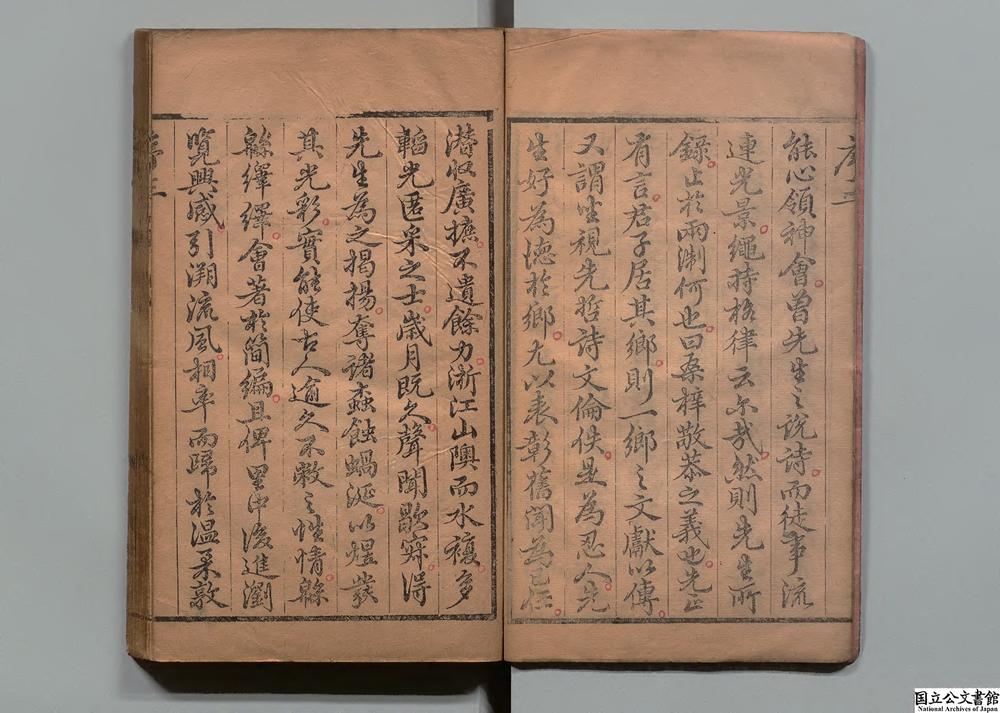 序二
能心領神會曾先生之說詩而徒事流
連光景繩持格律云尔哉然則先生所
錄止於兩浙何也曰桑梓敬恭之義也先正
有言君子居其鄉則一鄉之文獻以傳
又謂坐視先哲詩文淪佚是為忍人先
生好為德於鄉尤以表彰舊聞為已任
潛收廣摭不遺餘力浙江山隩而水複多
韜光匿采之士歲月既久聲聞歇寐得
先生為之揭揚奪諸蟲蝕蝸涎以煜發
其光彩實能使古人逾久不敝之性情緜
緜繹繹會著於簡編且俾里中後進瀏
覽興感引溯流風相率而歸於溫柔敦
国立公文書館
National Archives of Japan